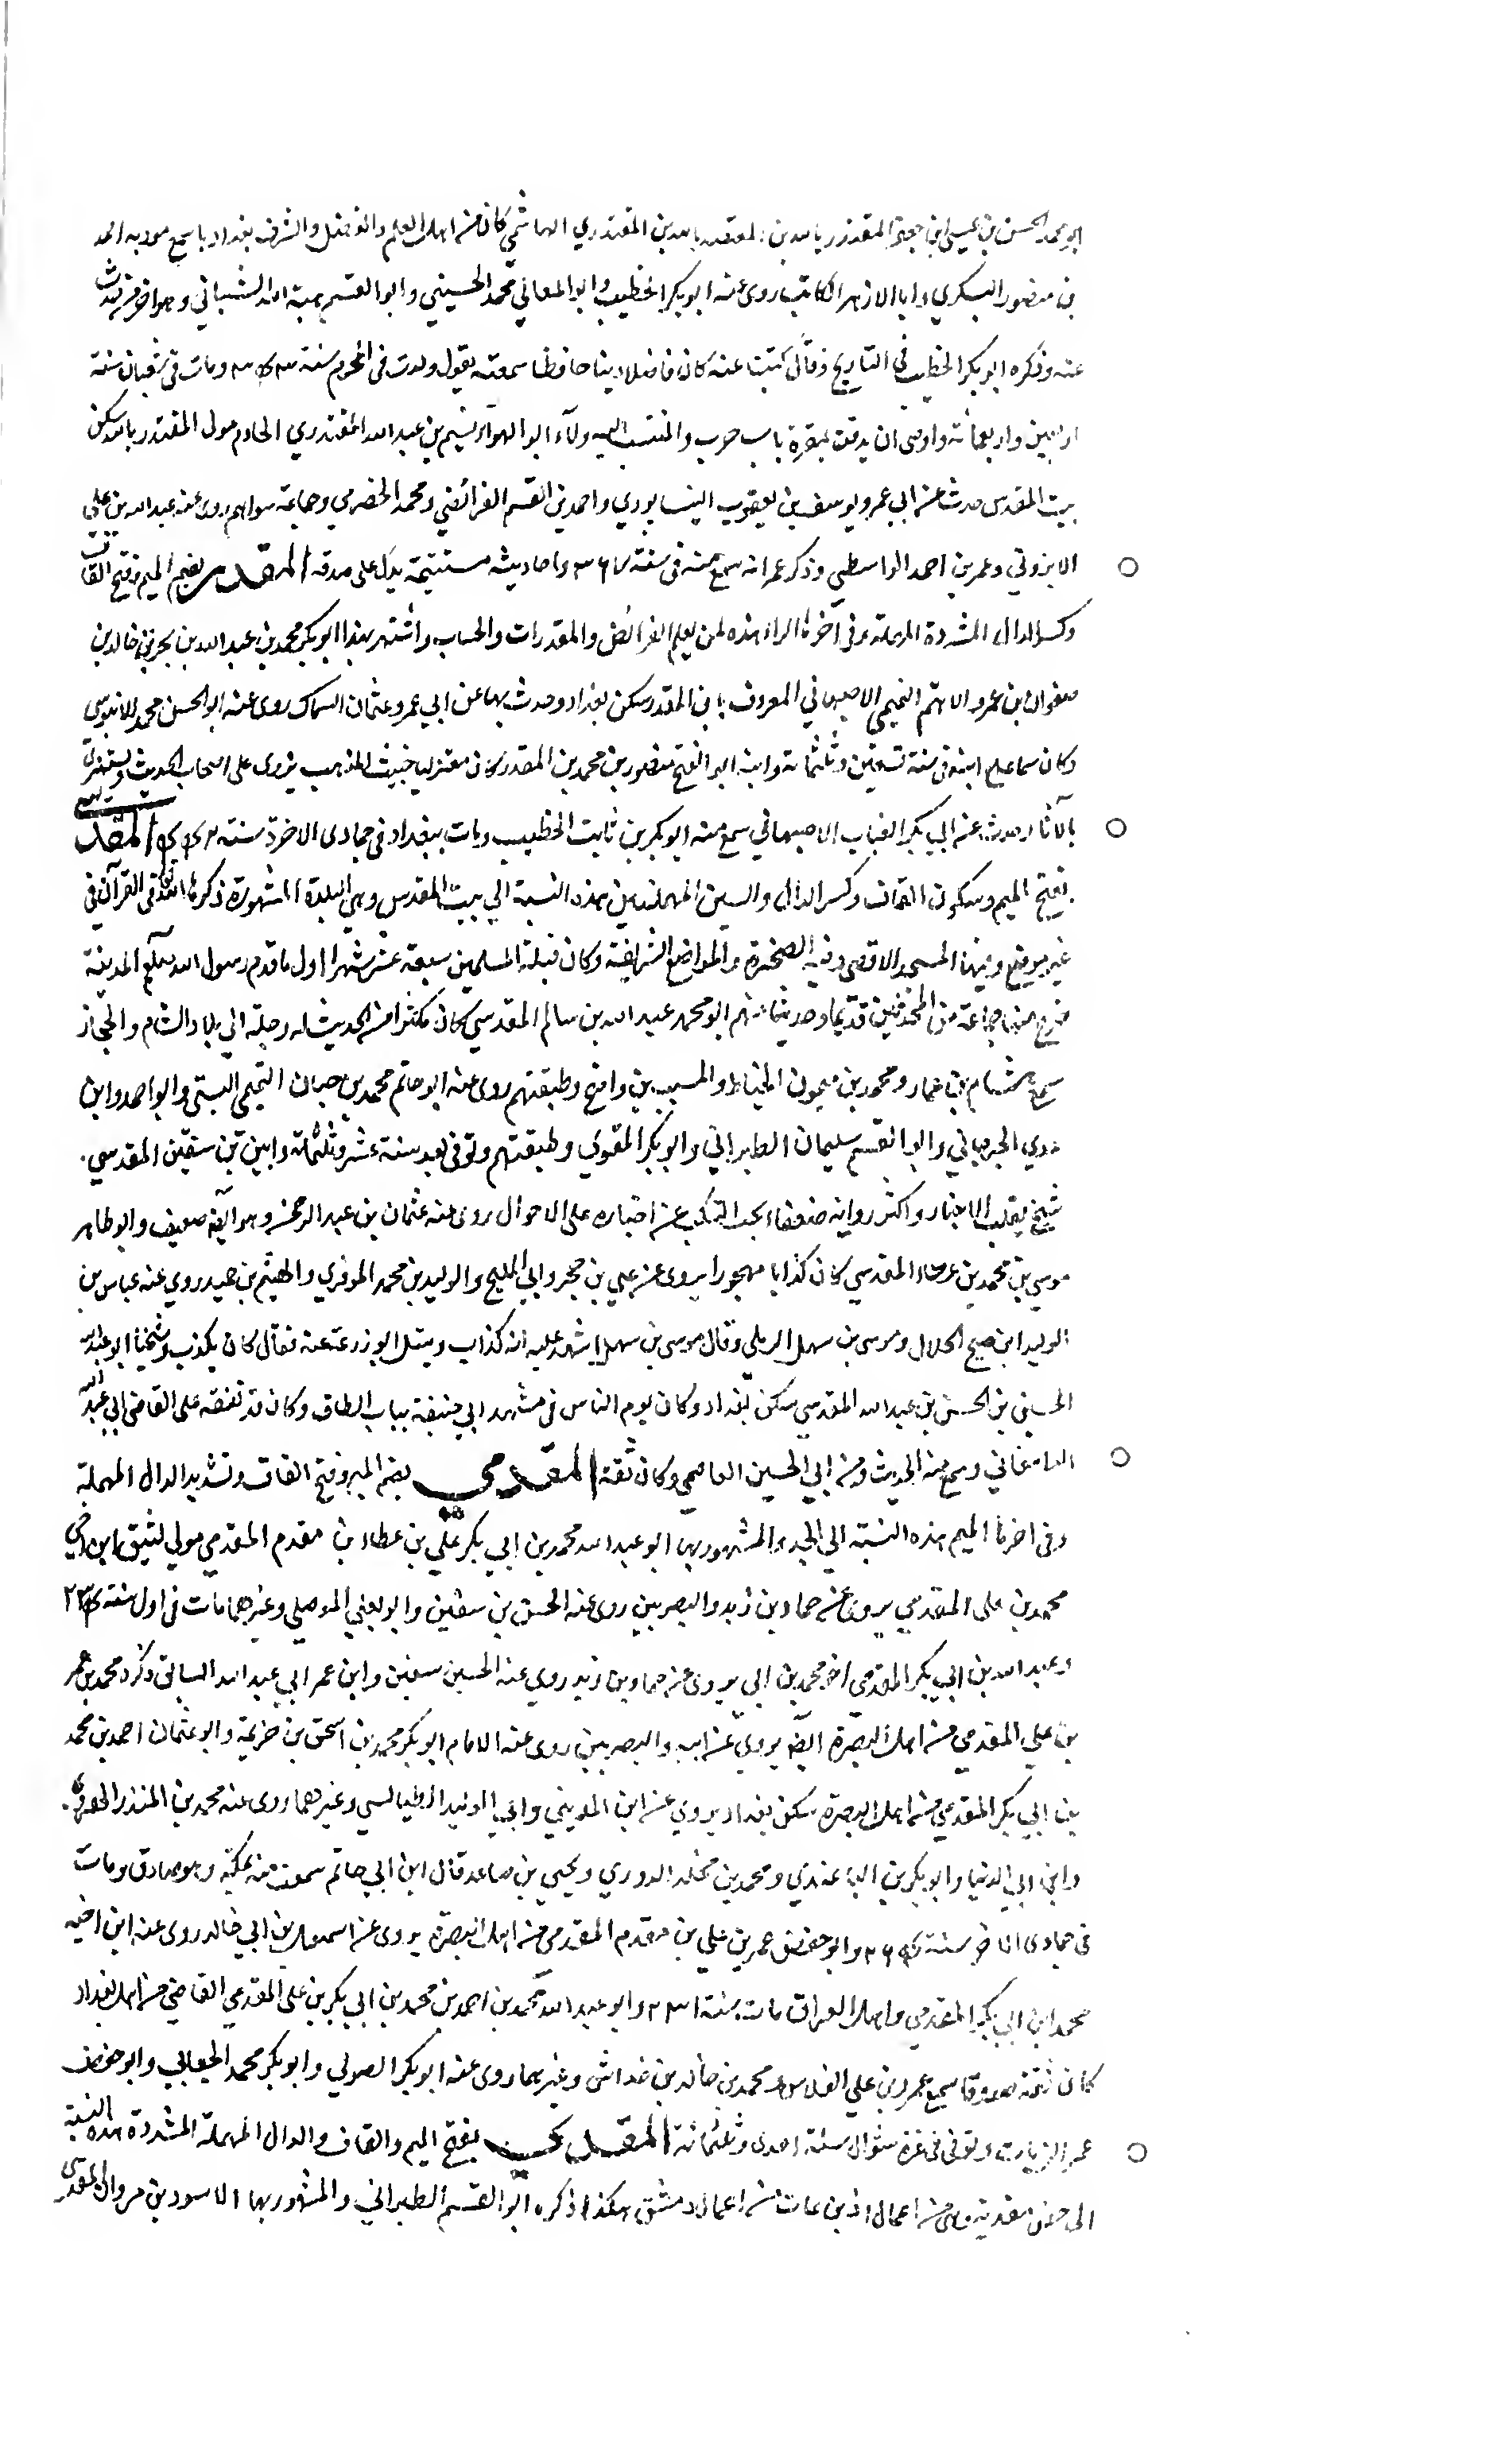 ابو محمد الحسن بن عيسى ابن جعفر المقتدر بالله بن المعتضد بالله بن المقتدري الهاشمي كان من اهل العلم والفضل والشرف ببغداد سمع مودبه احمد
بن منصور اليشكري وابا الازهر الكاتب روى عنه ابو بكر الخطيب وابو المعالي محمد الحسيني وابو القسم هبة الله الشيباني وهو اخر من حدث
عنه وذكره ابو بكر الخطيب في التاريخ وقال كتبنا عنه كان فاضلا دينا حافظا سمعته يقول ولدت في المحرم سنة ٣٤٣ ومات في شعبان سنة
اربعين واربعمائة واوصى ان يدفن بمقبرة باب حرب والمنتسب اليه ولاء ابو الهواء نسيم بن عبد الله المقتدري الخادم مولى المقتدر بالله سكن
بيت المقدس حدث عن ابي عمرو يوسف بن يعقوب النيسابوري واحمد بن القسم الفرائضي ومحمد الحضرمي وجماعة سواهم روى عنه عبد الله بن علي
الابزوني وعمر بن احمد الواسطي وذكر عمر انه سمع منه في سنة ٣٦٧ واحاديثه مستقيمة يدل على صدقه المقدر بضم الميم وفتح القاف
وكسر الدال المشددة المهملة وفي اخرها الراء هذه لمن يعلم الفرائض والمقدرات والحساب واشتهر بهذا ابو بكر محمد بن عبد الله بن خالد بن
صفوان بن عمرو الاهتم التميمي الاصبهاني المعروف بابن المقدر سكن بغداد وحدث بها عن ابي عمرو عثمان السماك روى عنه ابو الحسن محمد الابنوسي
وكان سماعه منه في سنة تسعين وثلثمائة وابنه ابو الفتح منصور بن محمد بن المقدر كان معتزليا خبيث المذهب يزرى على اصحاب الحديث ويستهزئ
بالآثار حدث عن ابي بكر القباب الاصبهاني سمع منه ابو بكر بن ثابت الخطيب ومات ببغداد في جمادى الاخرة سنة ٤٤٢ المقدسي
بفتح الميم وسكون القاف وكسر الدال والسين المهملتين هذه النسبة الى بيت المقدس وهي البلدة المشهورة ذكرها الله تعالى في القرآن في
غير موضع وفيها المسجد الاقصى وفيه الصخرة والمواضع الشريفة وكان قبلة المسلمين سبعة عشر شهرا اول ما قدم رسول الله صلعم المدينة
خرج منها جماعة من المحدثين قديما وحديثا منهم ابو محمد عبد الله بن سالم المقدسي كان مكثرا من الحديث له رحلة الى بلاد الشام والحجاز
سمع هشام بن عمار ومحمد بن ميمون الخياط والمسيب بن واضح وطبقتهم روى عنه ابو حاتم محمد بن حبان التميمي البستي وابو احمد وابن
عدي الجرجاني وابو القسم سليمان الطبراني وابو بكر المقري وطبقتهم وتوفي بعد سنة عشر وثلثمائة وابين بن سفين المقدسي
شيخ يقلب الاخبار واكثر رواية ضعفاء يجب التنكب عن اخباره على الاحوال روى عنه عثمان بن عبد الرحمن وهو ايضا ضعيف وابو طاهر
موسى بن محمد بن عطاء المقدسي كان كذابا مهجورا يروى عن علي بن حجر وابي المليح والوليد بن محمد الموقري والهيثم بن حميد روى عنه عباس بن
الوليد ابن صبيح الخلال وموسى بن سهل الرملي وقال موسى بن سهل اشهد عليه انه كذاب وسئل ابو زرعة عنه فقال كان يكذب وشيخنا ابو عبد الله
الحسين بن الحسن بن عبد الله المقدسي سكن بغداد وكان يوم الناس في مشهد ابي حنيفة بباب الطاق وكان قد تفقه على القاضي ابي عبد الله
الدامغاني وسمع منه الحديث ومن ابي الحسين العاصمي وكان ثقة المقدمي بضم الميم وفتح القاف وتشديد الدال المهملة
وفي اخرها الميم هذه النسبة الى الجد والمشهور بها ابو عبد الله محمد بن ابي بكر علي بن عطاء بن مقدم المقدمي مولى ثقيف ابن اخي
محمد بن علي المقدمي يروى عن حماد بن زيد والبصريين روى عنه الحسن بن سفين وابو يعلى الموصلي وغيرهما مات في اول سنة ٢٣٤
وعبد الله بن ابي بكر المقدمي اخو محمد بن ابي يروى عن حماد بن زيد روى عنه الحسين سفين وابن عمر ابي عبد الله السابق ذكره محمد بن عمر
بن علي المقدمي من اهل البصرة ايضا يروى عن ابيه والبصريين روى عنه الامام ابو بكر محمد بن اسحق بن خزيمة وابو عثمان احمد بن محمد
بن ابي بكر المقدمي من اهل البصرة سكن بغداد يروى عن ابن المديني وابي الوليد الطيالسي وغيرهما روى عنه محمد بن المنذر الهروي
وابن ابي الدنيا وابو بكر بن الباغندي ومحمد بن مخلد الدوري ويحيى بن صاعد قال ابن ابي حاتم سمعت منه بمكة وهو صادق ومات
في جمادى الاخر سنة ٢٦٤ وابو حفص عمر بن علي بن مقدم المقدمي من اهل البصرة يروى عن اسمعيل بن ابي خالد روى عنه ابن اخيه
محمد ابن ابي بكر المقدمي واهل العراق مات سنة وابو عبد الله محمد بن احمد بن محمد بن ابي بكر بن علي المقدمي القاضي من اهل بغداد
كان ثقة صدوقا سمع عمرو بن علي الفلاس ومحمد بن خالد بن خداش وغيرهما روى عنه ابو بكر الصولي وابو بكر محمد الجعابي وابو حفص
عمر الزيات وتوفي في غرة شوال سنة احدى وثلثمائة المقدي بفتح الميم والقاف والدال المهملة المشددة هذه النسبة
الى حصن مقدية وهي من اعمال اذرعات من اعمال دمشق هكذا ذكره ابو القسم الطبراني والمشهور بها الاسود بن مروان المقدي